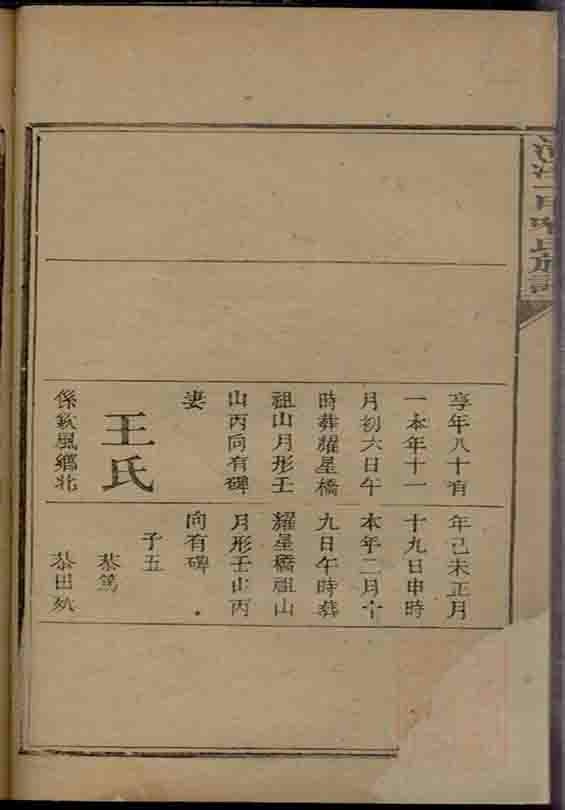 氏族譜
享年八十有
一本年十一
月初六日午
時葬耀星橋
祖山月形壬
山丙向有碑
妻
王氏
係欽風鄉北
年己未正月
十九日申時
本年二月十
九日午時葬
耀星橋祖山
月形壬山丙
向有碑
子五
恭篤
恭田